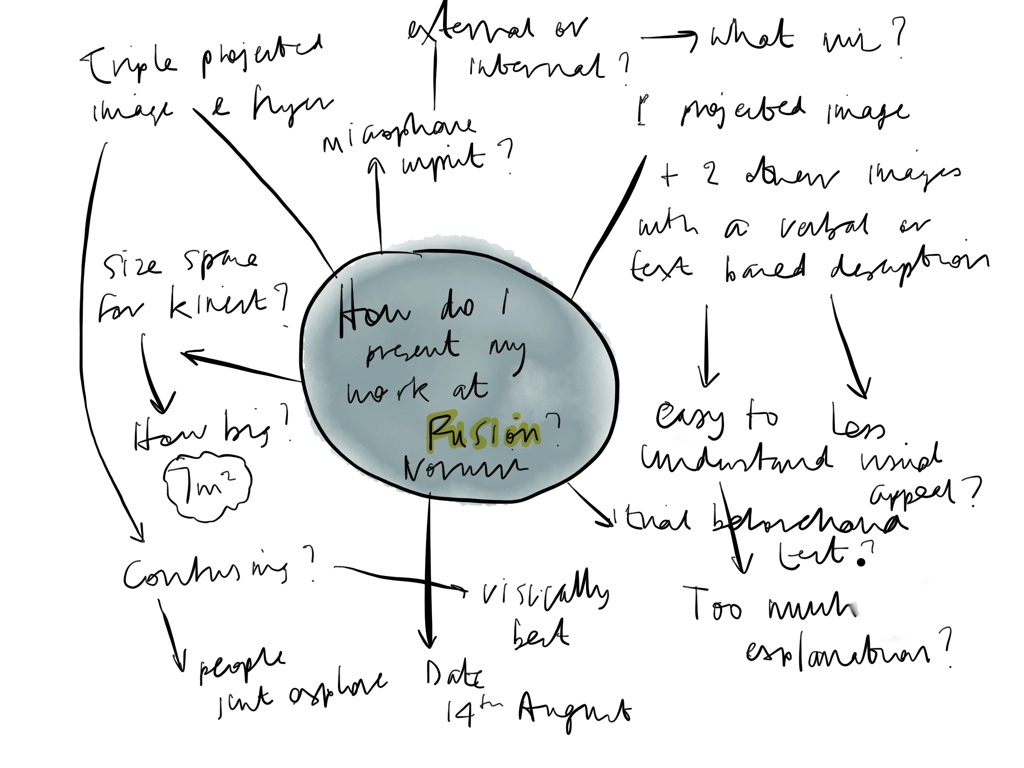 Triple projected
image & flyer
external or
internal?
What mic?
microphone
input?
1 projected image
+ 2 other images
with a verbal or
text based description
size space
for kinect?
How big?
7m²
How do I
present my
work at
Fusion?
easy to
understand
Less
visual
appeal?
1 trial beforehand
test?
Confusing?
visually
best
Too much
explanation?
people
just explore
Date
14th August